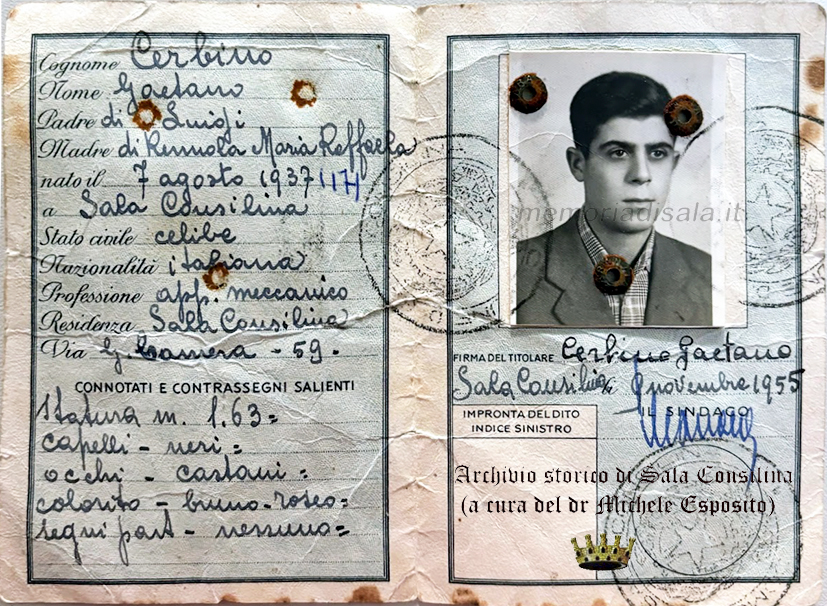 Cognome Cerbino
Nome Gaetano
Padre di Luigi
Madre di Rennola Maria Raffaela
nato il 7 agosto 1937
a Sala Consilina
Stato civile celibe
Nazionalità italiana
Professione app. meccanico
Residenza Sala Consilina
Via G. Camera - 59 -
CONNOTATI E CONTRASSEGNI SALIENTI
Statura m. 1.63 =
capelli - neri =
occhi - castani =
colorito - bruno-roseo =
segni part - nessuno =
memoriadisala.it
FIRMA DEL TITOLARE Cerbino Gaetano
Sala Consilina li 9 novembre 1955
IL SINDACO
IMPRONTA DEL DITO
INDICE SINISTRO
Archivio storico di Sala Consilina
(a cura del dr Michele Esposito)